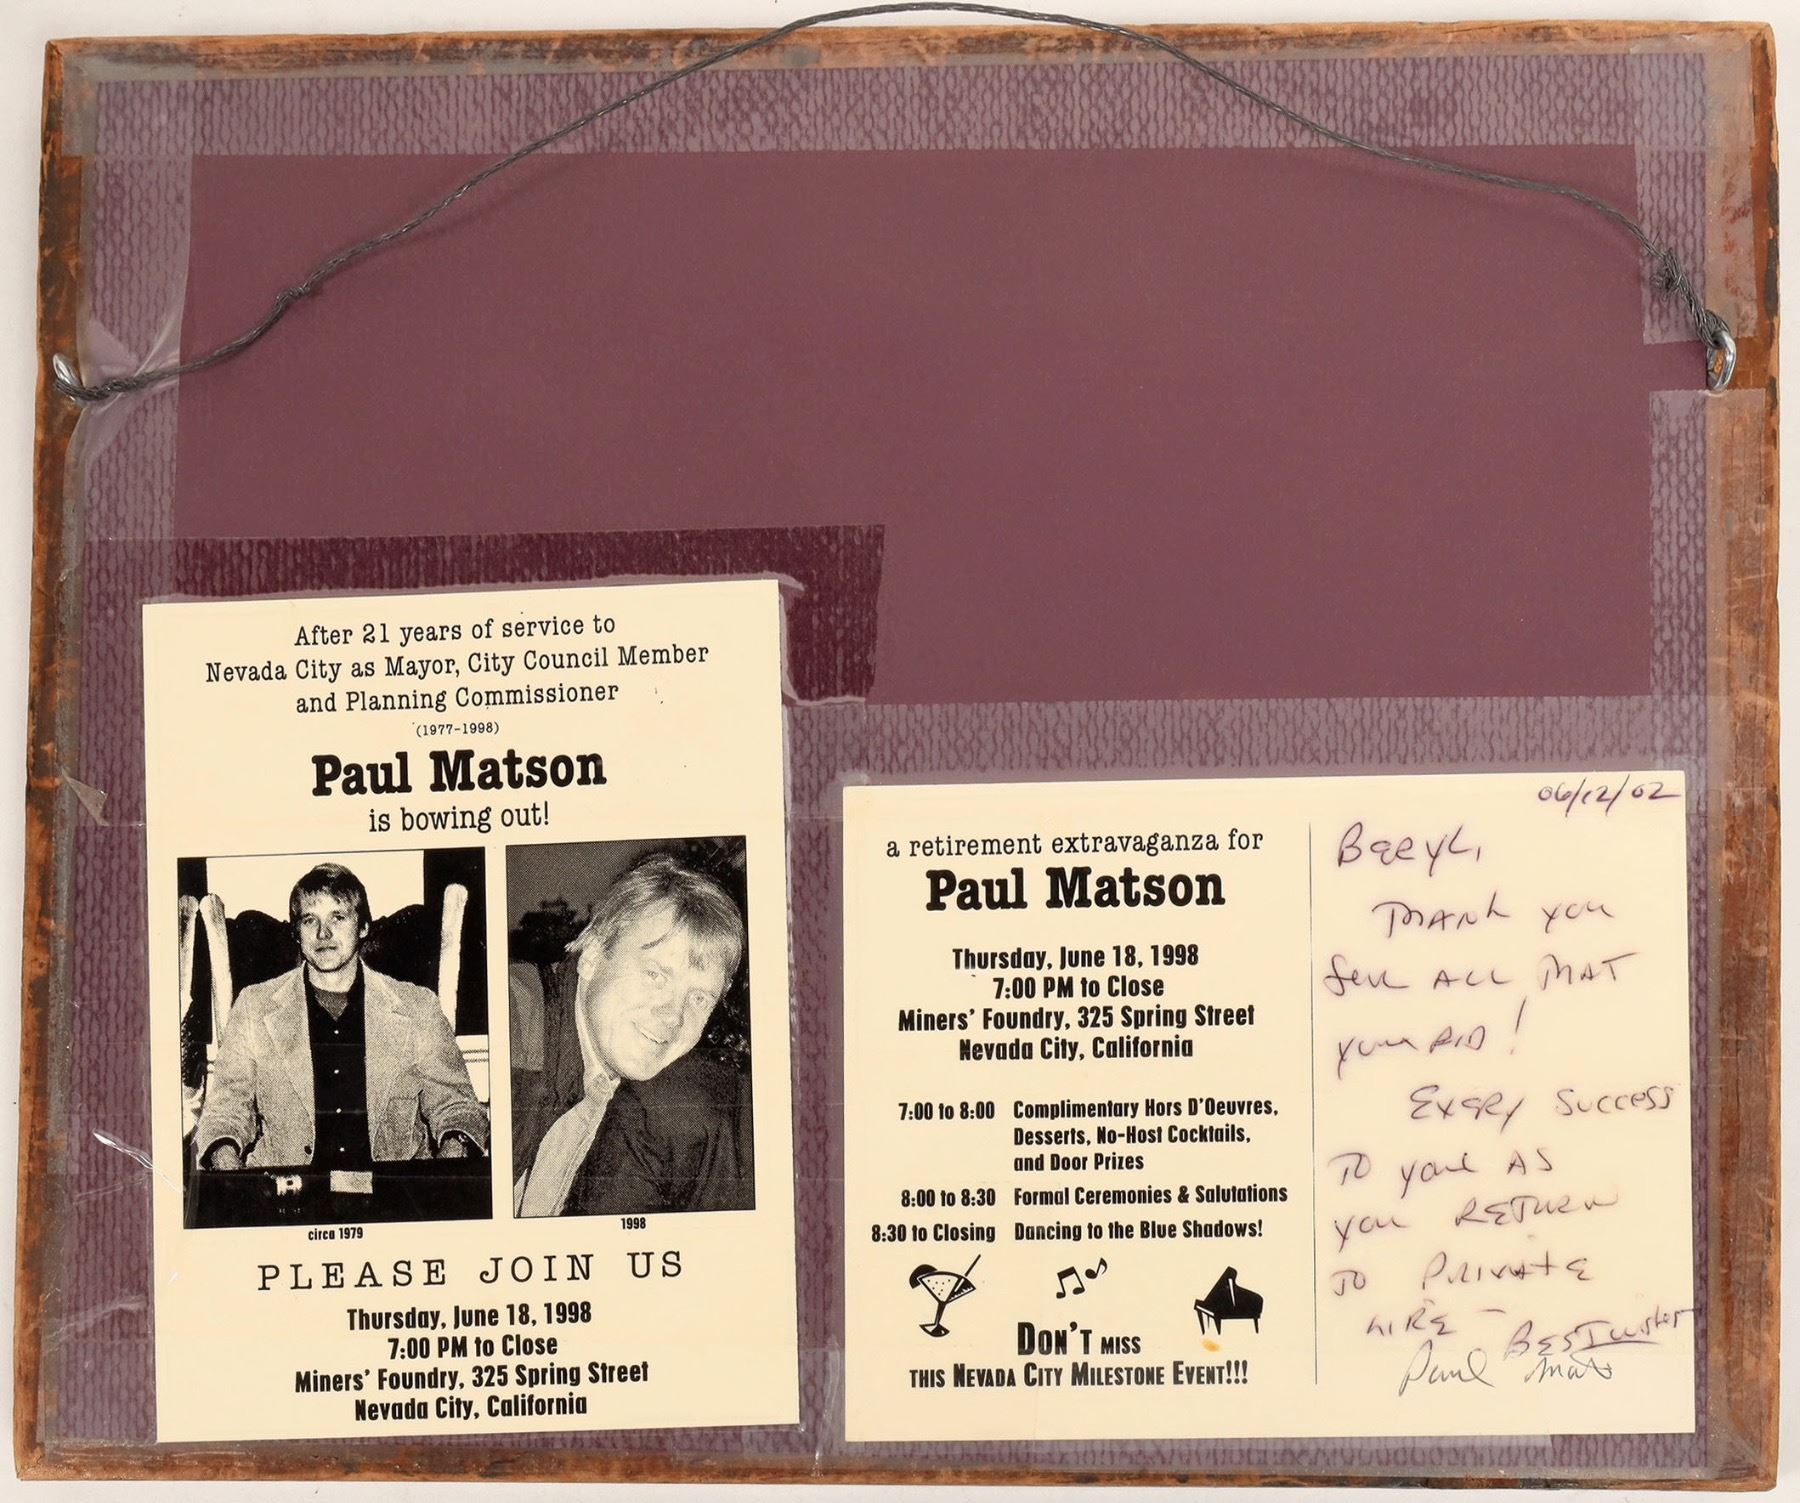 After 21 years of service to
Nevada City as Mayor, City Council Member
and Planning Commissioner
(1977-1998)
Paul Matson
is bowing out!
circa 1979
1998
PLEASE JOIN US
Thursday, June 18, 1998
7:00 PM to Close
Miners' Foundry, 325 Spring Street
Nevada City, California
a retirement extravaganza for
Paul Matson
Thursday, June 18, 1998
7:00 PM to Close
Miners' Foundry, 325 Spring Street
Nevada City, California
7:00 to 8:00 Complimentary Hors D'Oeuvres,
Desserts, No-Host Cocktails,
and Door Prizes
8:00 to 8:30 Formal Ceremonies & Salutations
8:30 to Closing Dancing to the Blue Shadows!
DON'T MISS
THIS NEVADA CITY MILESTONE EVENT!!!
06/12/02
THANK YOU
ALL THAT
YOU DID!
EVERY SUCCESS
TO YOU AS
YOU RETURN
TO PRIVATE
LIFE -
BEST WISHES
Paul